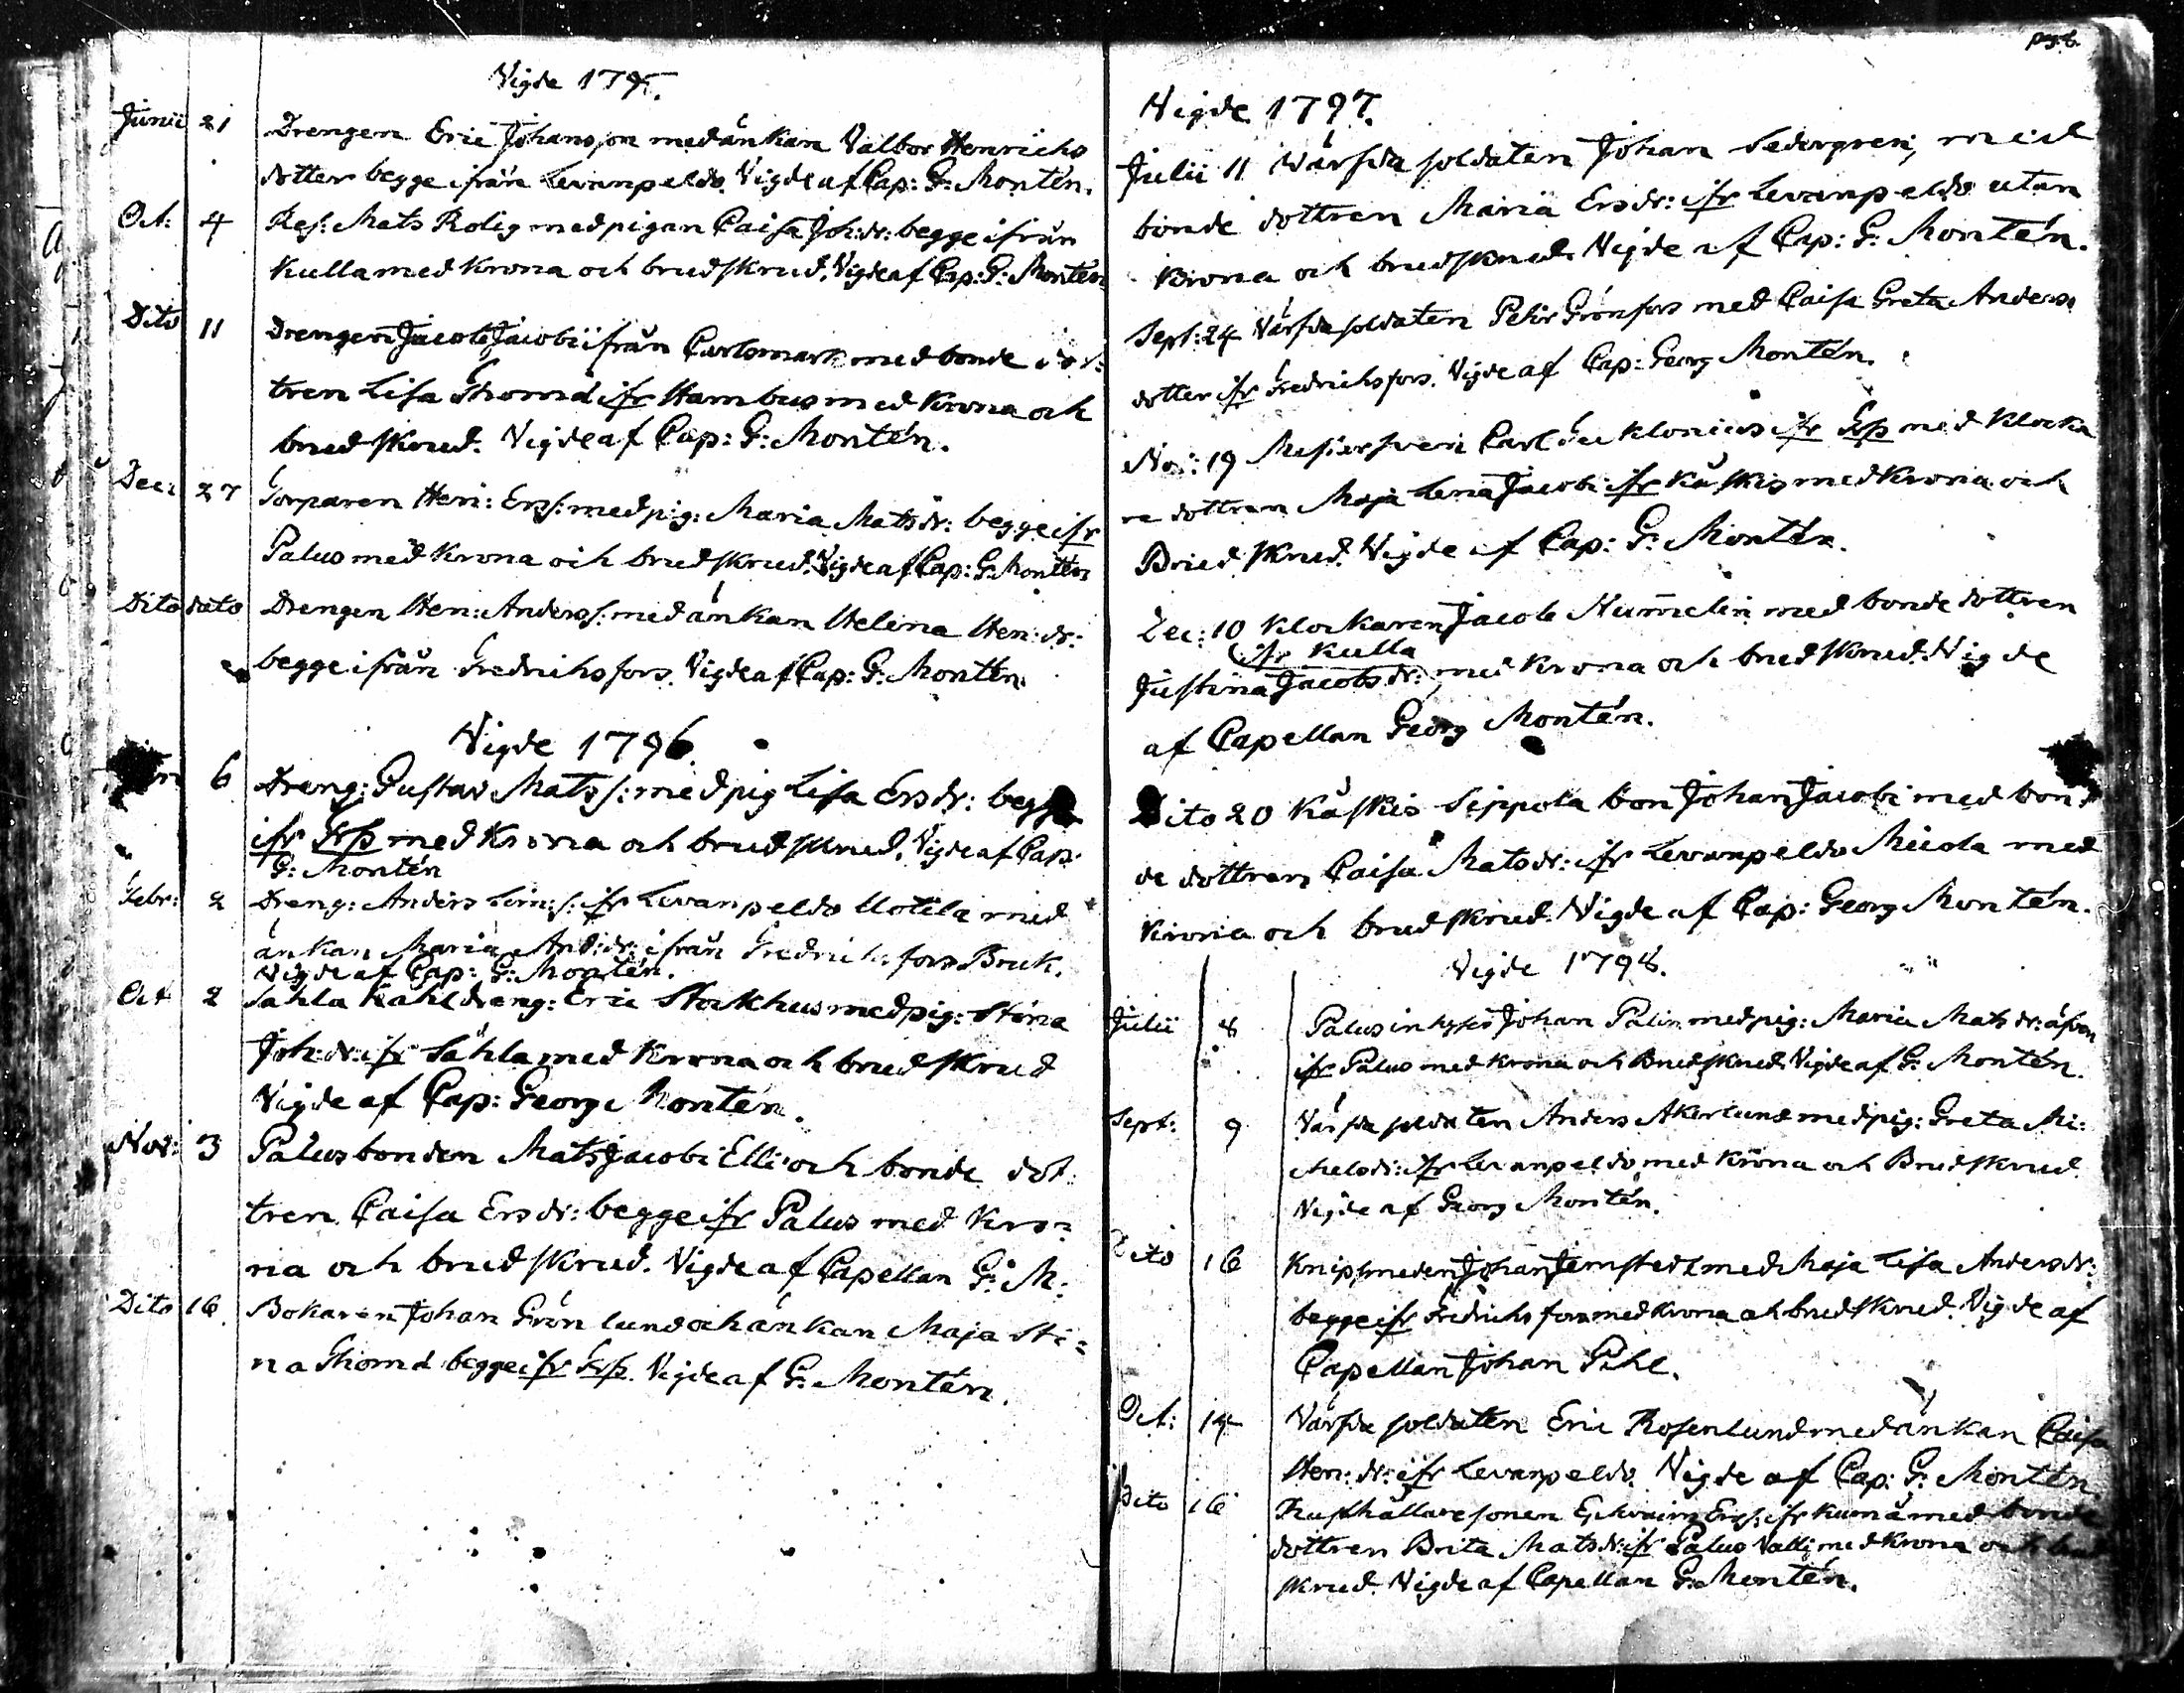 Vigde 1795.
Junii 21 Drengen Eric Johansson med änkan Valbor Henrichs
dotter begge ifrån Levanpeldo. Vigde af Cap: G: Montén.
Oct: 4 Res: Mats Rolig med pigan Caisa Joh: dr: begge ifrån
Kulla med Krona och brudskrud. Vigde af Cap: G: Montén
Dito 11 Drengen Jacob Jacobi ifrån Carlsmark med bonde dot:
tren Lisa Thomæ ifr Hambus med Krona och
brudskrud. Vigde af Cap: G: Montén.
Dec: 27 Torparen Hen: Ers: med pig: Maria Mats dr: begge ifr
Palus med Krona och brudskrud. Vigde af Cap: G: Montén
Dito dato Drengen Hen: Anders: med änkan Helena Hen: dr:
begge ifrån Fredrichsfors. Vigde af Cap: G: Montén.
Vigde 1796.
6 Dreng: Gustav Mats s: med pig Lisa Ers dr: begge
ifr Frs med Krona och brudskrud. Vigde af Cap:
G: Montén
Febr: 2 Dreng: Anders Sim: s: ifr Levanpeldo Uotila med
änkan Maria And: dr: ifrån Fredrichsfors Bruk.
Vigde af Cap: G: Montén.
Oct 2 Sahla Kahl dreng: Eric Stockhus med pig: Stina
Joh: dr: ifr Såhla med Krona och brudskrud
Vigde af Cap: Georg Montén.
Nov: 3 Palus bonden Mats Jacobi Elli och bonde dot
tren Caisa Ers dr: begge ifr Palus med Kro=
na och brudskrud. Vigde af Capellan G: M:
Dito 16. Bokaren Johan Grönlund och änkan Maja Sti=
na Thomæ begge ifr Frs. Vigde af G: Montén.
Vigde 1797.
Julii 11 Värfda soldaten Johan Sedergren, med
bonde dottren Maria Ers dr: ifr Levanpeldo utan
Krona och brudskrud. Vigde af Cap: G: Montén.
Sept: 24 Värfda soldaten Petir Grönfors med Caisa Greta Anders
dotter ifr Fredrichsfors. Vigde af Cap: Georg Montén.
Nov: 19 Mästersven Carl Ful Klonius ifr Frs med Klocka
re dottren Maja Lena Jacobi ifr Kåskis med Krona och
Brudskrud. Vigde af Cap: G: Montén.
Dec: 10 Klockaren Jacob Nummelin med bonde dottren
ifr Kulla
Justina Jacobs dr: med Krona och brudskrud. Vigde
af Capellan Georg Montén.
Dito 20 Kåskis Seppola bon Johan Jacobi med bon
de dottren Caisa Mats dr: ifr Levanpeldo Meiola med
Krona och brudskrud. Vigde af Cap: Georg Montén.
Vigde 1798.
Julii 8 Palus inhyses Johan Palin med pig: Maria Mats dr: äfven
ifr Palus med Krona och Brudskrud. Vigde af G: Montén.
Sept: 9 Värfda soldaten Anders Åkerlund med pig: Greta Mi:
chels dr: ifr Levanpeldo med Krona och Brudskrud.
Vigde af Georg Montén.
Dito 16 Knipsmeden Johan Jernstedt med Maja Lisa Anders dr:
begge ifr Fredrichsfors med Krona och brudskrud. Vigde af
Capellan Johan Pihl.
Oct: 14 Värfda soldaten Eric Rosenlund med änkan Caisa
Hen: dr: ifr Levanpeldo. Vigde af Cap: G: Montén.
Dito 16 Rusthållare sonen Ers: ifr Kumå med bonde
dottren Brita Mats dr: ifr Palus Valli med Krona och brud
skrud. Vigde af Capellan G: Montén.